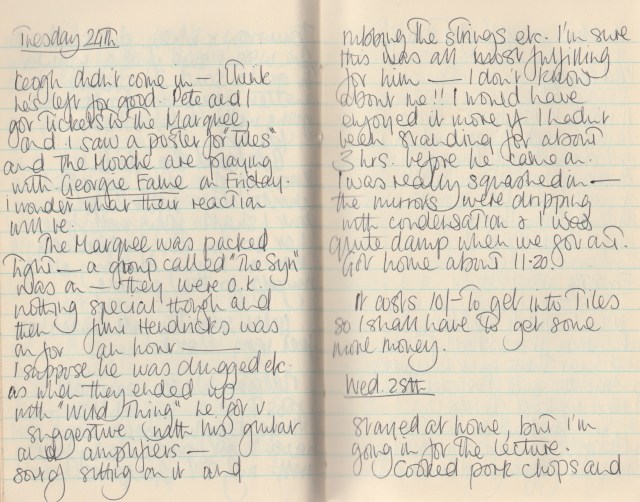 Tuesday 24th
Keogh didn't come in — I think
he's left for good. Pete and I
got tickets to the Marquee,
and I saw a poster for "Tiles"
and The Mooche are playing
with Georgie Fame on Friday.
I wonder what their reaction
will be.
The Marquee was packed
tight — a group called "The Syn"
was on — they were O.K.
nothing special though and
then Jimi Hendricks was
on for an hour —
I suppose he was drugged etc.
as when they ended up
with "Wild Thing" he got v.
suggestive (with his) guitar
and amplifiers —
sort of sitting on it and
rubbing the strings etc. I'm sure
this was all most fulfilling
for him — I don't know
about me!! I would have
enjoyed it more if I hadn't
been standing for about
3 hrs. before he came on.
I was really squashed in —
the mirrors were dripping
with condensation & I was
quite damp when we got out.
Got home about 11-20.
It costs 10/- to get into Tiles
so I shall have to get some
more money.
Wed. 25th
stayed at home, but I'm
going in for the lecture.
Cooked pork chops and